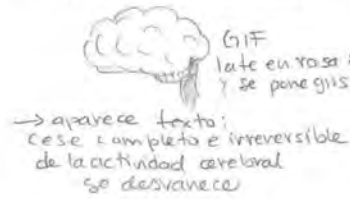 GIF
late en rosa
y se pone gris
→ aparece texto:
cese completo e irreversible
de la actividad cerebral
se desvanece